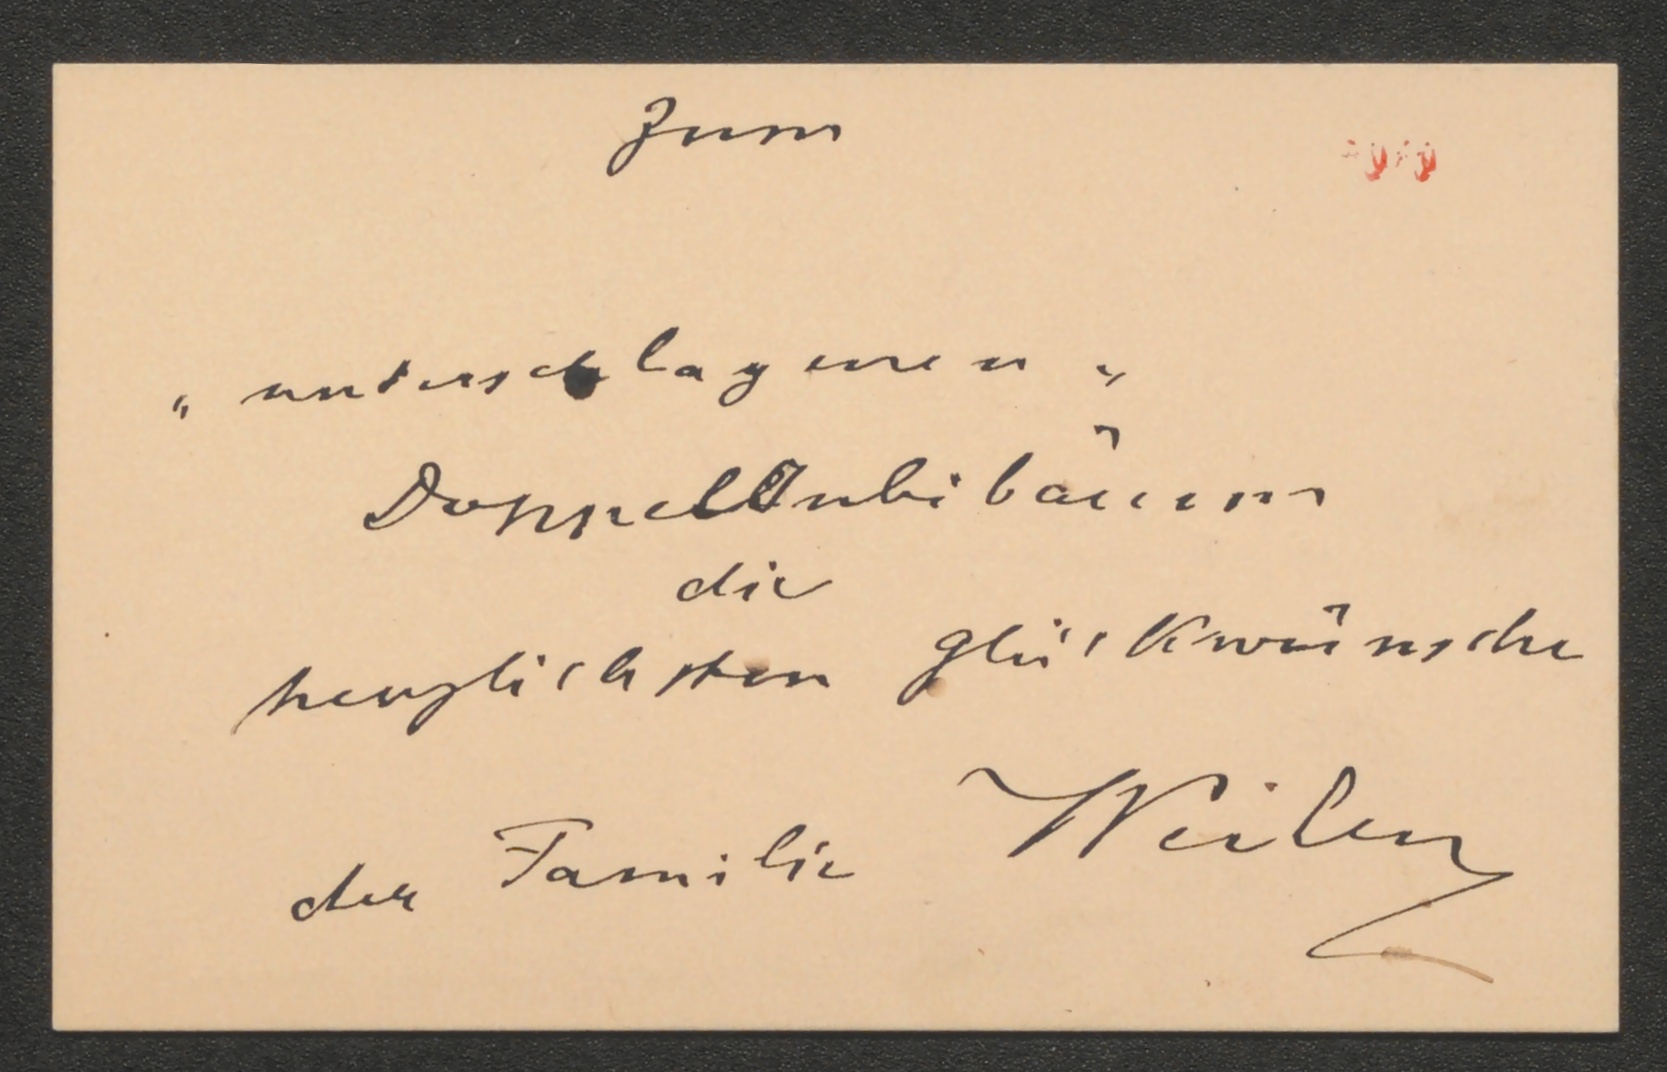 Zum
„unterschlagenen„
DoppelJubibäum
die
herzlichsten glückwünsche
der Familie Weilen